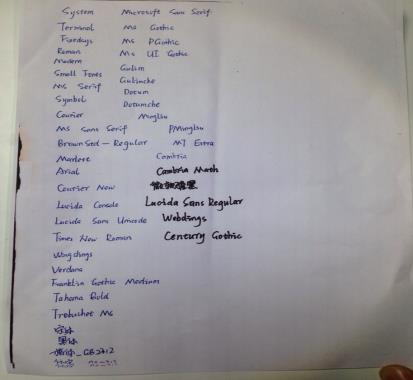 System Microsoft Sans Serif
Terminal Ms Gothic
Fixedsys Ms PGothic
Roman Ms UI Gothic
Modern
Small Fones Gulim
MS Serif Gulimche
Symbol Dotum
Dotumche
Courier Mingliu
MS Sans Serif PMingliu
Brown Std - Regular MT Extra
Marlett Cambria
Arial Cambria Math
Courier New 微软雅黑
Lucida Console Lucida Sans Regular
Lucida Sans Unicode Webdings
Times New Roman Century Gothic
Wingdings
Verdana
Franklin Gothic Medium
Tahoma Bold
Trebuchet Ms
宋体
黑体
楷体_GB2312